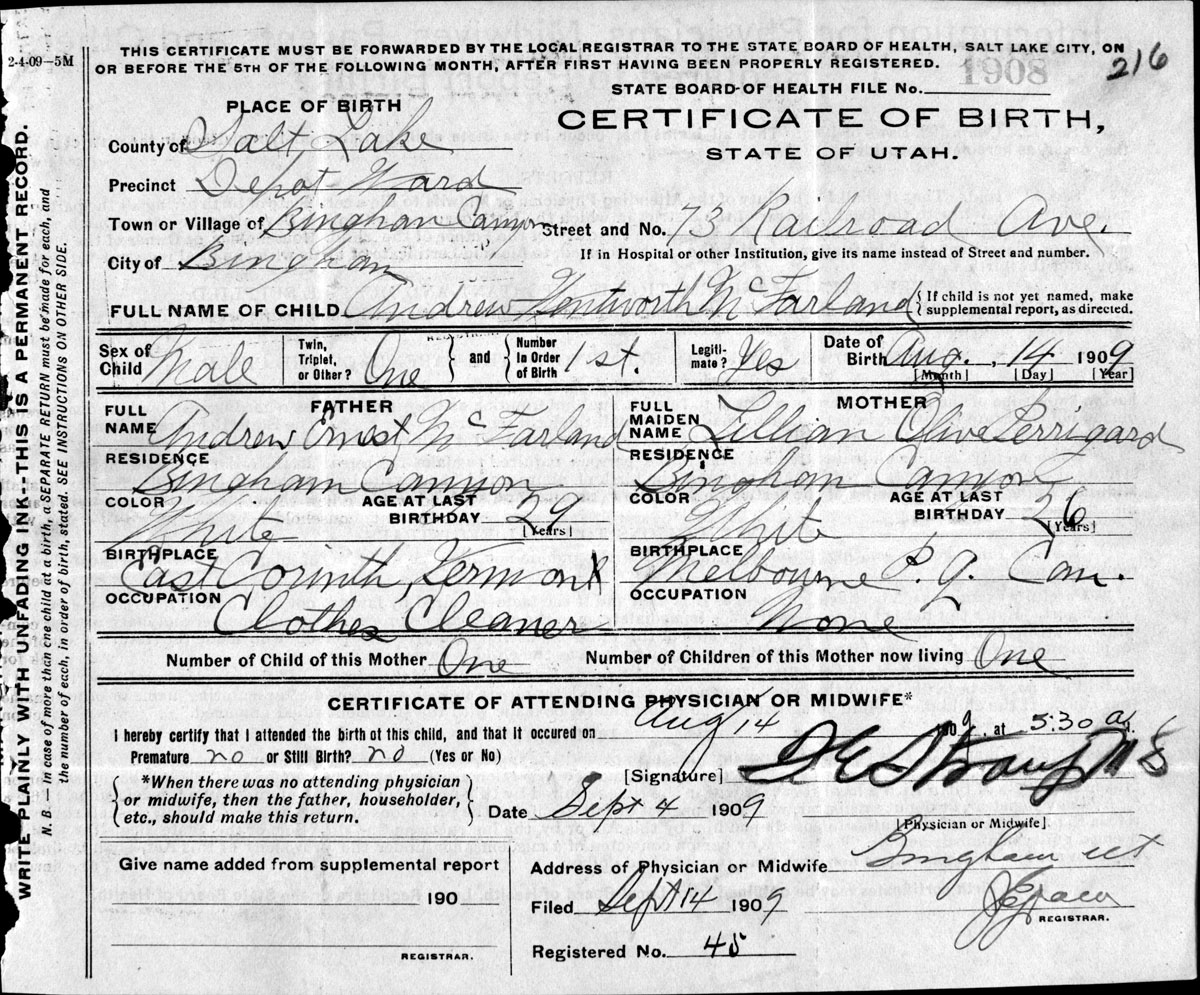 2-4-09—5M
THIS CERTIFICATE MUST BE FORWARDED BY THE LOCAL REGISTRAR TO THE STATE BOARD OF HEALTH, SALT LAKE CITY, ON
OR BEFORE THE 5TH OF THE FOLLOWING MONTH, AFTER FIRST HAVING BEEN PROPERLY REGISTERED.
1908
216
STATE BOARD OF HEALTH FILE No.
CERTIFICATE OF BIRTH,
STATE OF UTAH.
PLACE OF BIRTH
County of Salt Lake
Precinct Depot Ward
Town or Village of Bingham Canyon
Street and No. 73 Railroad Ave.
City of Bingham
If in Hospital or other Institution, give its name instead of Street and number.
FULL NAME OF CHILD Andrew Wentworth McFarland
If child is not yet named, make supplemental report, as directed.
Sex of Child Male
Twin, Triplet, or Other? One
and Number in Order of Birth 1st.
Legitimate? Yes
Date of Birth Aug. 14 1909
[Month] [Day] [Year]
FATHER
FULL NAME Andrew Ernest McFarland
RESIDENCE Bingham Canyon
COLOR White
AGE AT LAST BIRTHDAY 29 [Years]
BIRTHPLACE East Corinth, Vermont
OCCUPATION Clothes Cleaner
MOTHER
FULL MAIDEN NAME Lillian Olive Perrigard
RESIDENCE Bingham Canyon
COLOR White
AGE AT LAST BIRTHDAY 26 [Years]
BIRTHPLACE Melbourne P. Q. Can.
OCCUPATION None
Number of Child of this Mother One
Number of Children of this Mother now living One
CERTIFICATE OF ATTENDING PHYSICIAN OR MIDWIFE*
I hereby certify that I attended the birth of this child, and that it occured on Aug 14 1909, at 5:30 a M.
Premature no or Still Birth? no (Yes or No)
*When there was no attending physician
or midwife, then the father, householder,
etc., should make this return.
[Signature] Straup
Date Sept 4 1909
[Physician or Midwife]
Give name added from supplemental report
190
REGISTRAR.
Address of Physician or Midwife Bingham Ut
Filed Sept 14 1909
REGISTRAR.
Registered No. 45
WRITE PLAINLY WITH UNFADING INK---THIS IS A PERMANENT RECORD.
N. B.—In case of more than one child at a birth, a SEPARATE RETURN must be made for each, and
the number of each, in order of birth, stated. SEE INSTRUCTIONS ON OTHER SIDE.